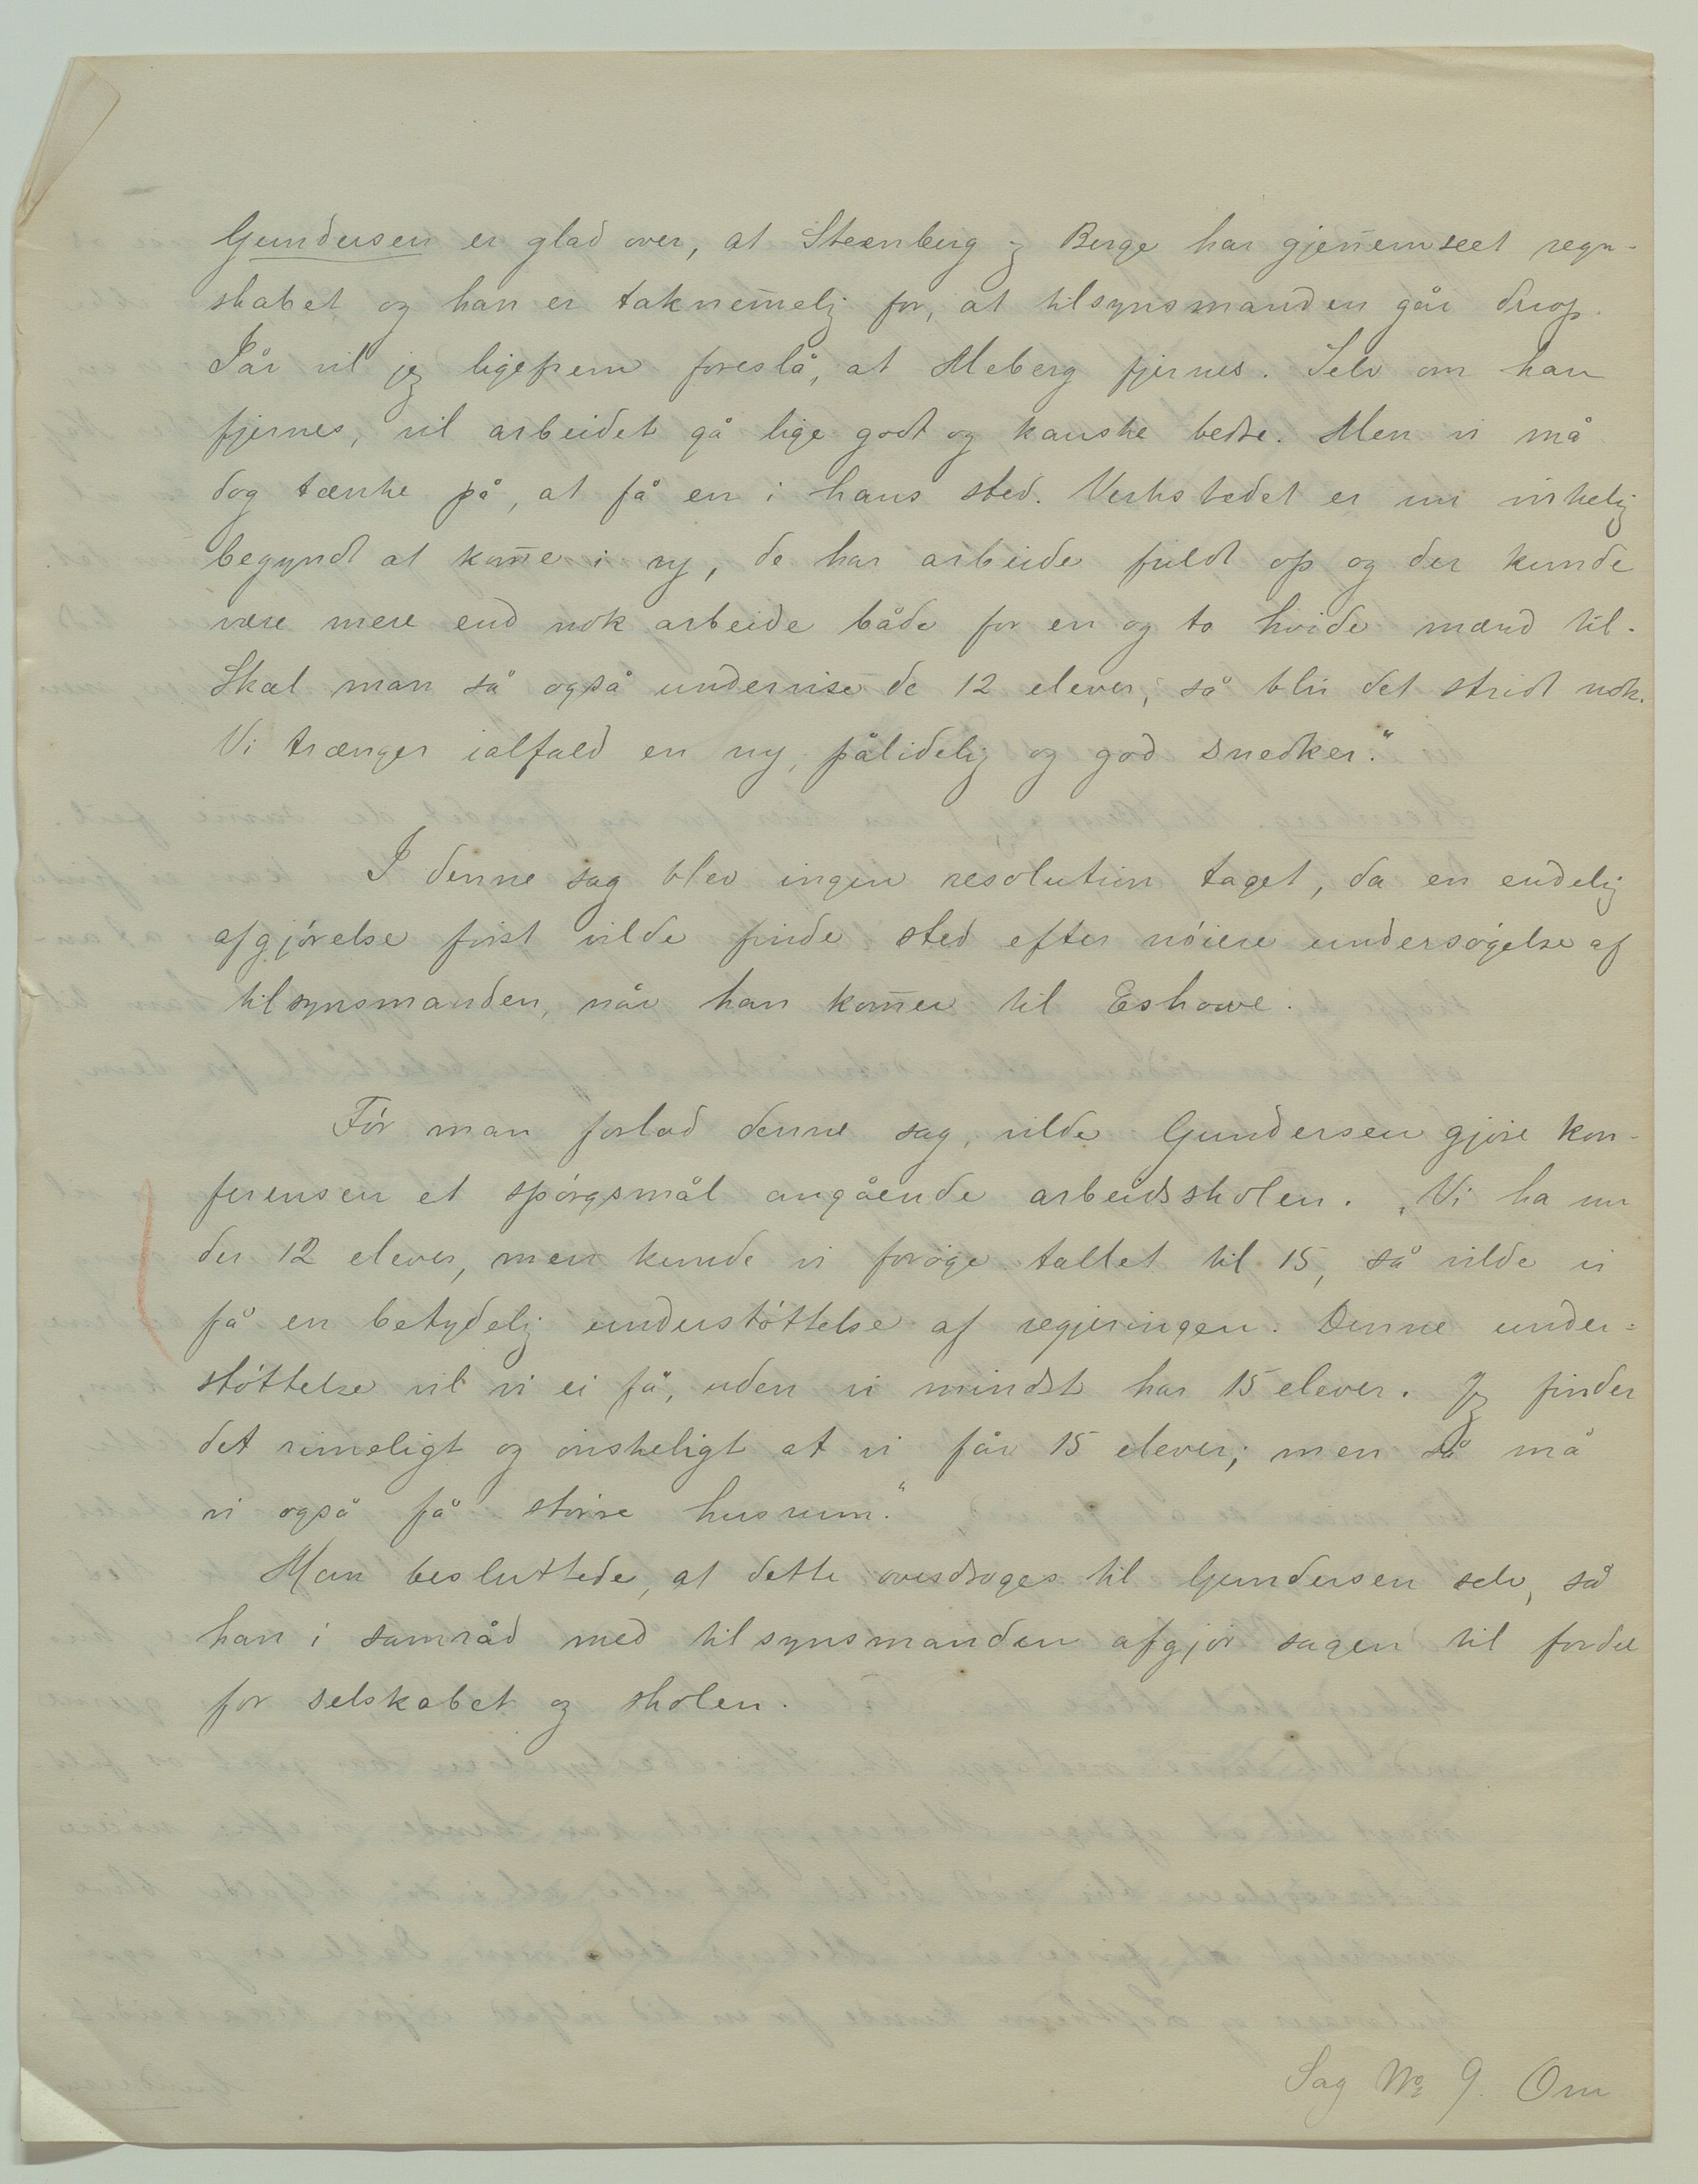 Gundersen er glad over, at Steenberg og Berge har gjen̄emseet regn-
skabet og han er taknem̄elig for, at tilsynsmanden går derop.
I år vil jeg ligefrem foreslå, at Meberg fjernes. Selv om han
fjernes, vil arbeidet gå lige godt og kanske bedre. Men vi må
dog tænke på, at få en i hans sted. Verkstedet er nu virkelig
begyndt at kom̄e i ry, de har arbeide fuldt op og der kunde
være mere end nok arbeide både for en og to hvide mænd til.
Skal man så også undervise de 12 elever, så blir det stridt nok.
Vi trænger ialfald en ny, pålidelig og god snedker."
I denne sag blev ingen resolution taget, da en endelig
afgjørelse først vilde finde sted efter nøiere undersøgelse af
tilsynsmanden, når han kom̄er til Eshowe.
Før man forlod denne sag, vilde Gundersen gjøre kon-
ferensen et spørgsmål angående arbeidsskolen. „Vi ha nu
der 12 elever, men kunde vi forøge tallet til 15, så vilde vi
få en betydelig understøttelse af regjeringen. Denne under=
støttelse vil vi ei få, uden vi mindst har 15 elever. Jeg finder
det rimeligt og ønskeligt at vi får 15 elever; men så må
vi også få større husrum."
Man besluttede, at dette overdroges til Gundersen selv, så
han i samråd med tilsynsmanden afgjør sagen til fordel
for selskabet og skolen.
Sag No 9. Om